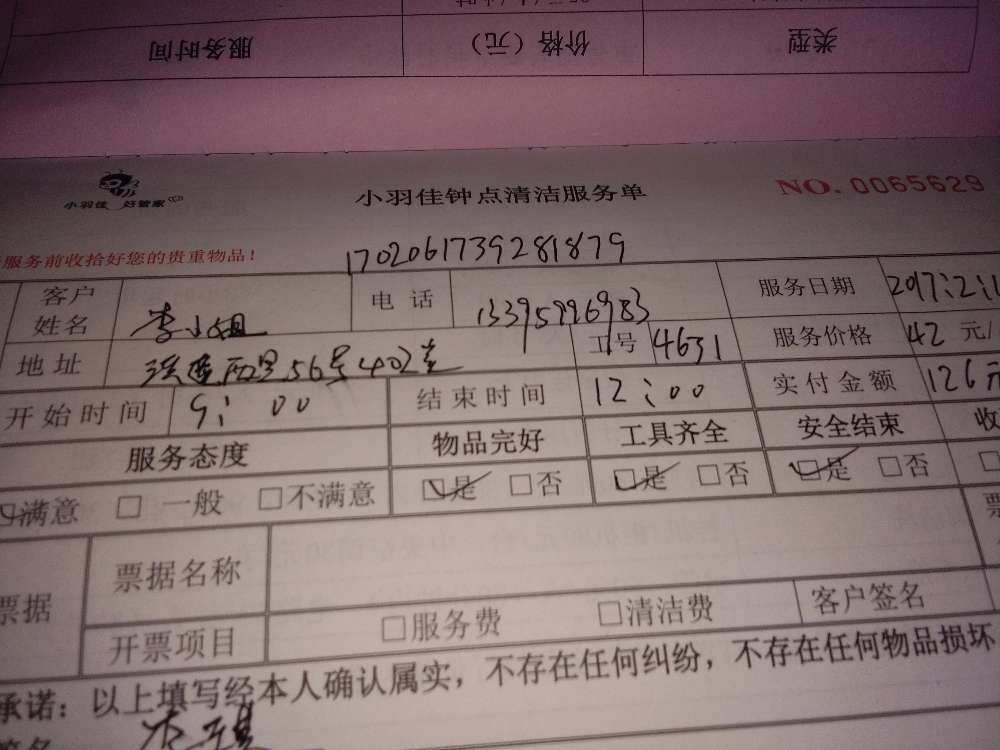 服务时间 价格（元） 类型
小羽佳 好管家
小羽佳钟点清洁服务单
NO. 0065629
服务前收拾好您的贵重物品！
1702061739281879
客户姓名 李小姐 电话 13395996983 服务日期 2017:2:1
地址 56号402室 工号 4631 服务价格 42 元/
开始时间 9:00 结束时间 12:00 实付金额 126元
服务态度 物品完好 工具齐全 安全结束 收
满意 一般 不满意 是 否 是 否 是 否
票据 票据名称 票
开票项目 服务费 清洁费 客户签名
承诺：以上填写经本人确认属实，不存在任何纠纷，不存在任何物品损坏
签名